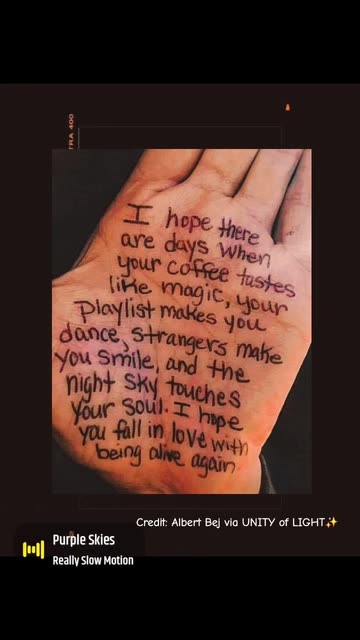 TRA 400
I hope there
are days when
your coffee tastes
like magic, your
playlist makes you
dance, strangers make
you smile, and the
night sky touches
your soul. I hope
you fall in love with
being alive again
Credit: Albert Bej via UNITY of LIGHT✨
Purple Skies
Really Slow Motion